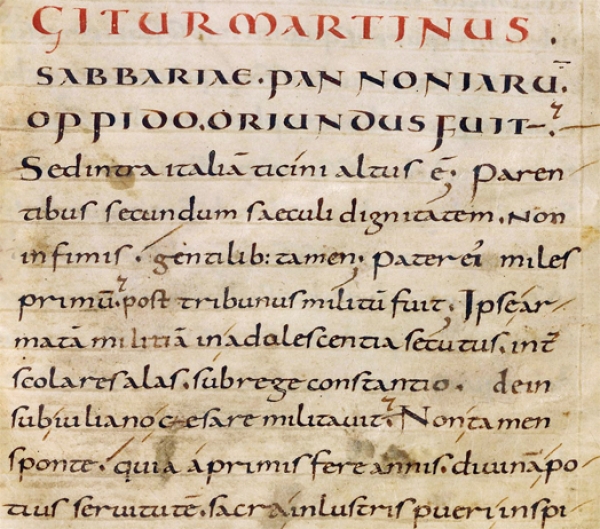 GITUR MARTINUS.
SABBARIAE. PANNONIARŪ.
OPPIDO. ORIUNDUS FUIT.
Sed intra italiā ticini altus ē; Paren
tibus secundum saeculi dignitatem. Non
infimis. gentilib: tamen; Pater ei' miles
primū. post tribunus militū fuit; Ipse ar
matā militiā in adolescentia secutus. int̄
scolares alas. sub rege constantio. dein
sub iuliano cęsare militavit. Non tamen
sponte. quia a primis fere annis. divinā po
tius servitutē. sacra inlustris pueri inspi